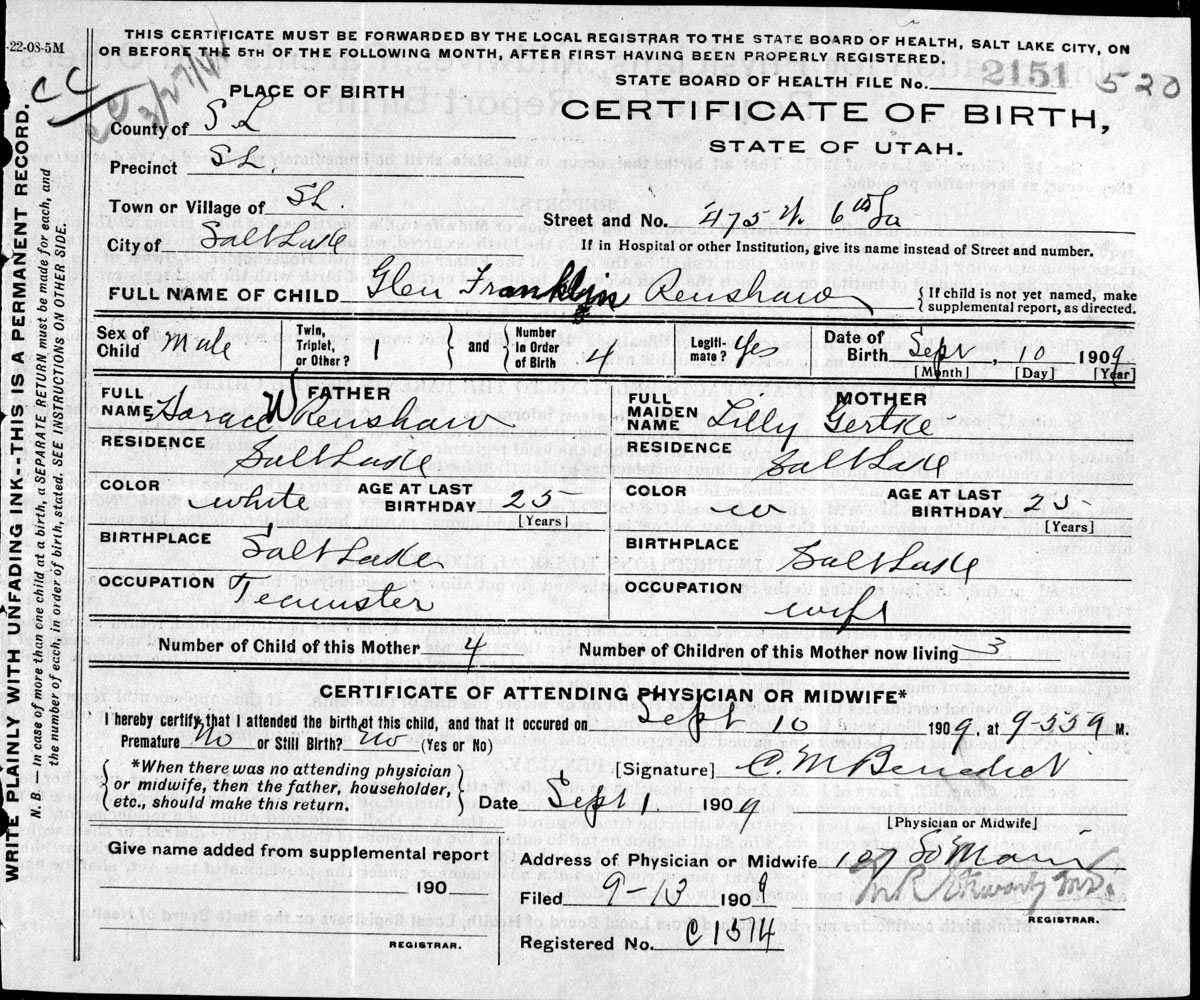 -22-08-5M
THIS CERTIFICATE MUST BE FORWARDED BY THE LOCAL REGISTRAR TO THE STATE BOARD OF HEALTH, SALT LAKE CITY, ON
OR BEFORE THE 5TH OF THE FOLLOWING MONTH, AFTER FIRST HAVING BEEN PROPERLY REGISTERED.
STATE BOARD OF HEALTH FILE No. 2151 520
CC
PLACE OF BIRTH
CERTIFICATE OF BIRTH,
STATE OF UTAH.
County of S L
Precinct S L.
Town or Village of S L.
Street and No. 475 W. 6th So
City of Salt Lake
If in Hospital or other Institution, give its name instead of Street and number.
FULL NAME OF CHILD Glen Franklin Renshaw
{ If child is not yet named, make
supplemental report, as directed.
Sex of Child Male
Twin, Triplet, or Other? 1 } and { Number in Order of Birth 4
Legiti-mate? Yes
Date of Birth Sept, 10 1909
[Month] [Day] [Year]
FATHER
FULL NAME Horace W Renshaw
RESIDENCE Salt Lake
COLOR white AGE AT LAST BIRTHDAY 25
[Years]
BIRTHPLACE Salt Lake
OCCUPATION Teamster
MOTHER
FULL MAIDEN NAME Lilly Gertke
RESIDENCE Salt Lake
COLOR w AGE AT LAST BIRTHDAY 25
[Years]
BIRTHPLACE Salt Lake
OCCUPATION wife
Number of Child of this Mother 4 Number of Children of this Mother now living 3
CERTIFICATE OF ATTENDING PHYSICIAN OR MIDWIFE*
I hereby certify, that I attended the birth of this child, and that it occured on Sept 10 1909, at 9-55 M.
Premature No or Still Birth? No (Yes or No)
{ *When there was no attending physician
or midwife, then the father, householder,
etc., should make this return. }
[Signature] C. M Benedict
Date Sept 1 1909
[Physician or Midwife]
Give name added from supplemental report
190
REGISTRAR.
Address of Physician or Midwife 107 So Main
Filed 9-13 1909
REGISTRAR.
Registered No. C1374
WRITE PLAINLY WITH UNFADING INK---THIS IS A PERMANENT RECORD.
N. B.—In case of more than one child at a birth, a SEPARATE RETURN must be made for each, and
the number of each, in order of birth, stated. SEE INSTRUCTIONS ON OTHER SIDE.